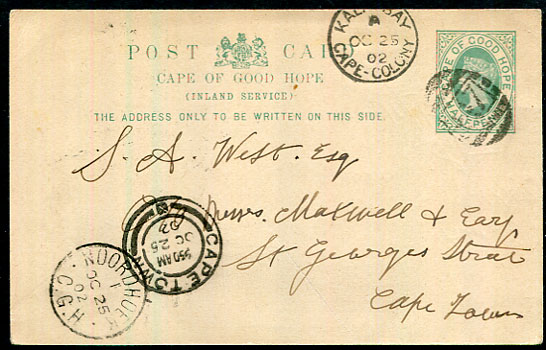 POST CARD
CAPE OF GOOD HOPE
(INLAND SERVICE)
THE ADDRESS ONLY TO BE WRITTEN ON THIS SIDE.
KALK BAY
A
OC 25
02
CAPE-COLONY
CAPE OF GOOD HOPE
HALFPENNY
S. A. West. Esq
Messrs. Maxwell & Earp
St Georges Street
Cape Town
CAPE TOWN
9 50 AM
OC 25
02
NOORDHOEK
OC 25
02
C.G.H.